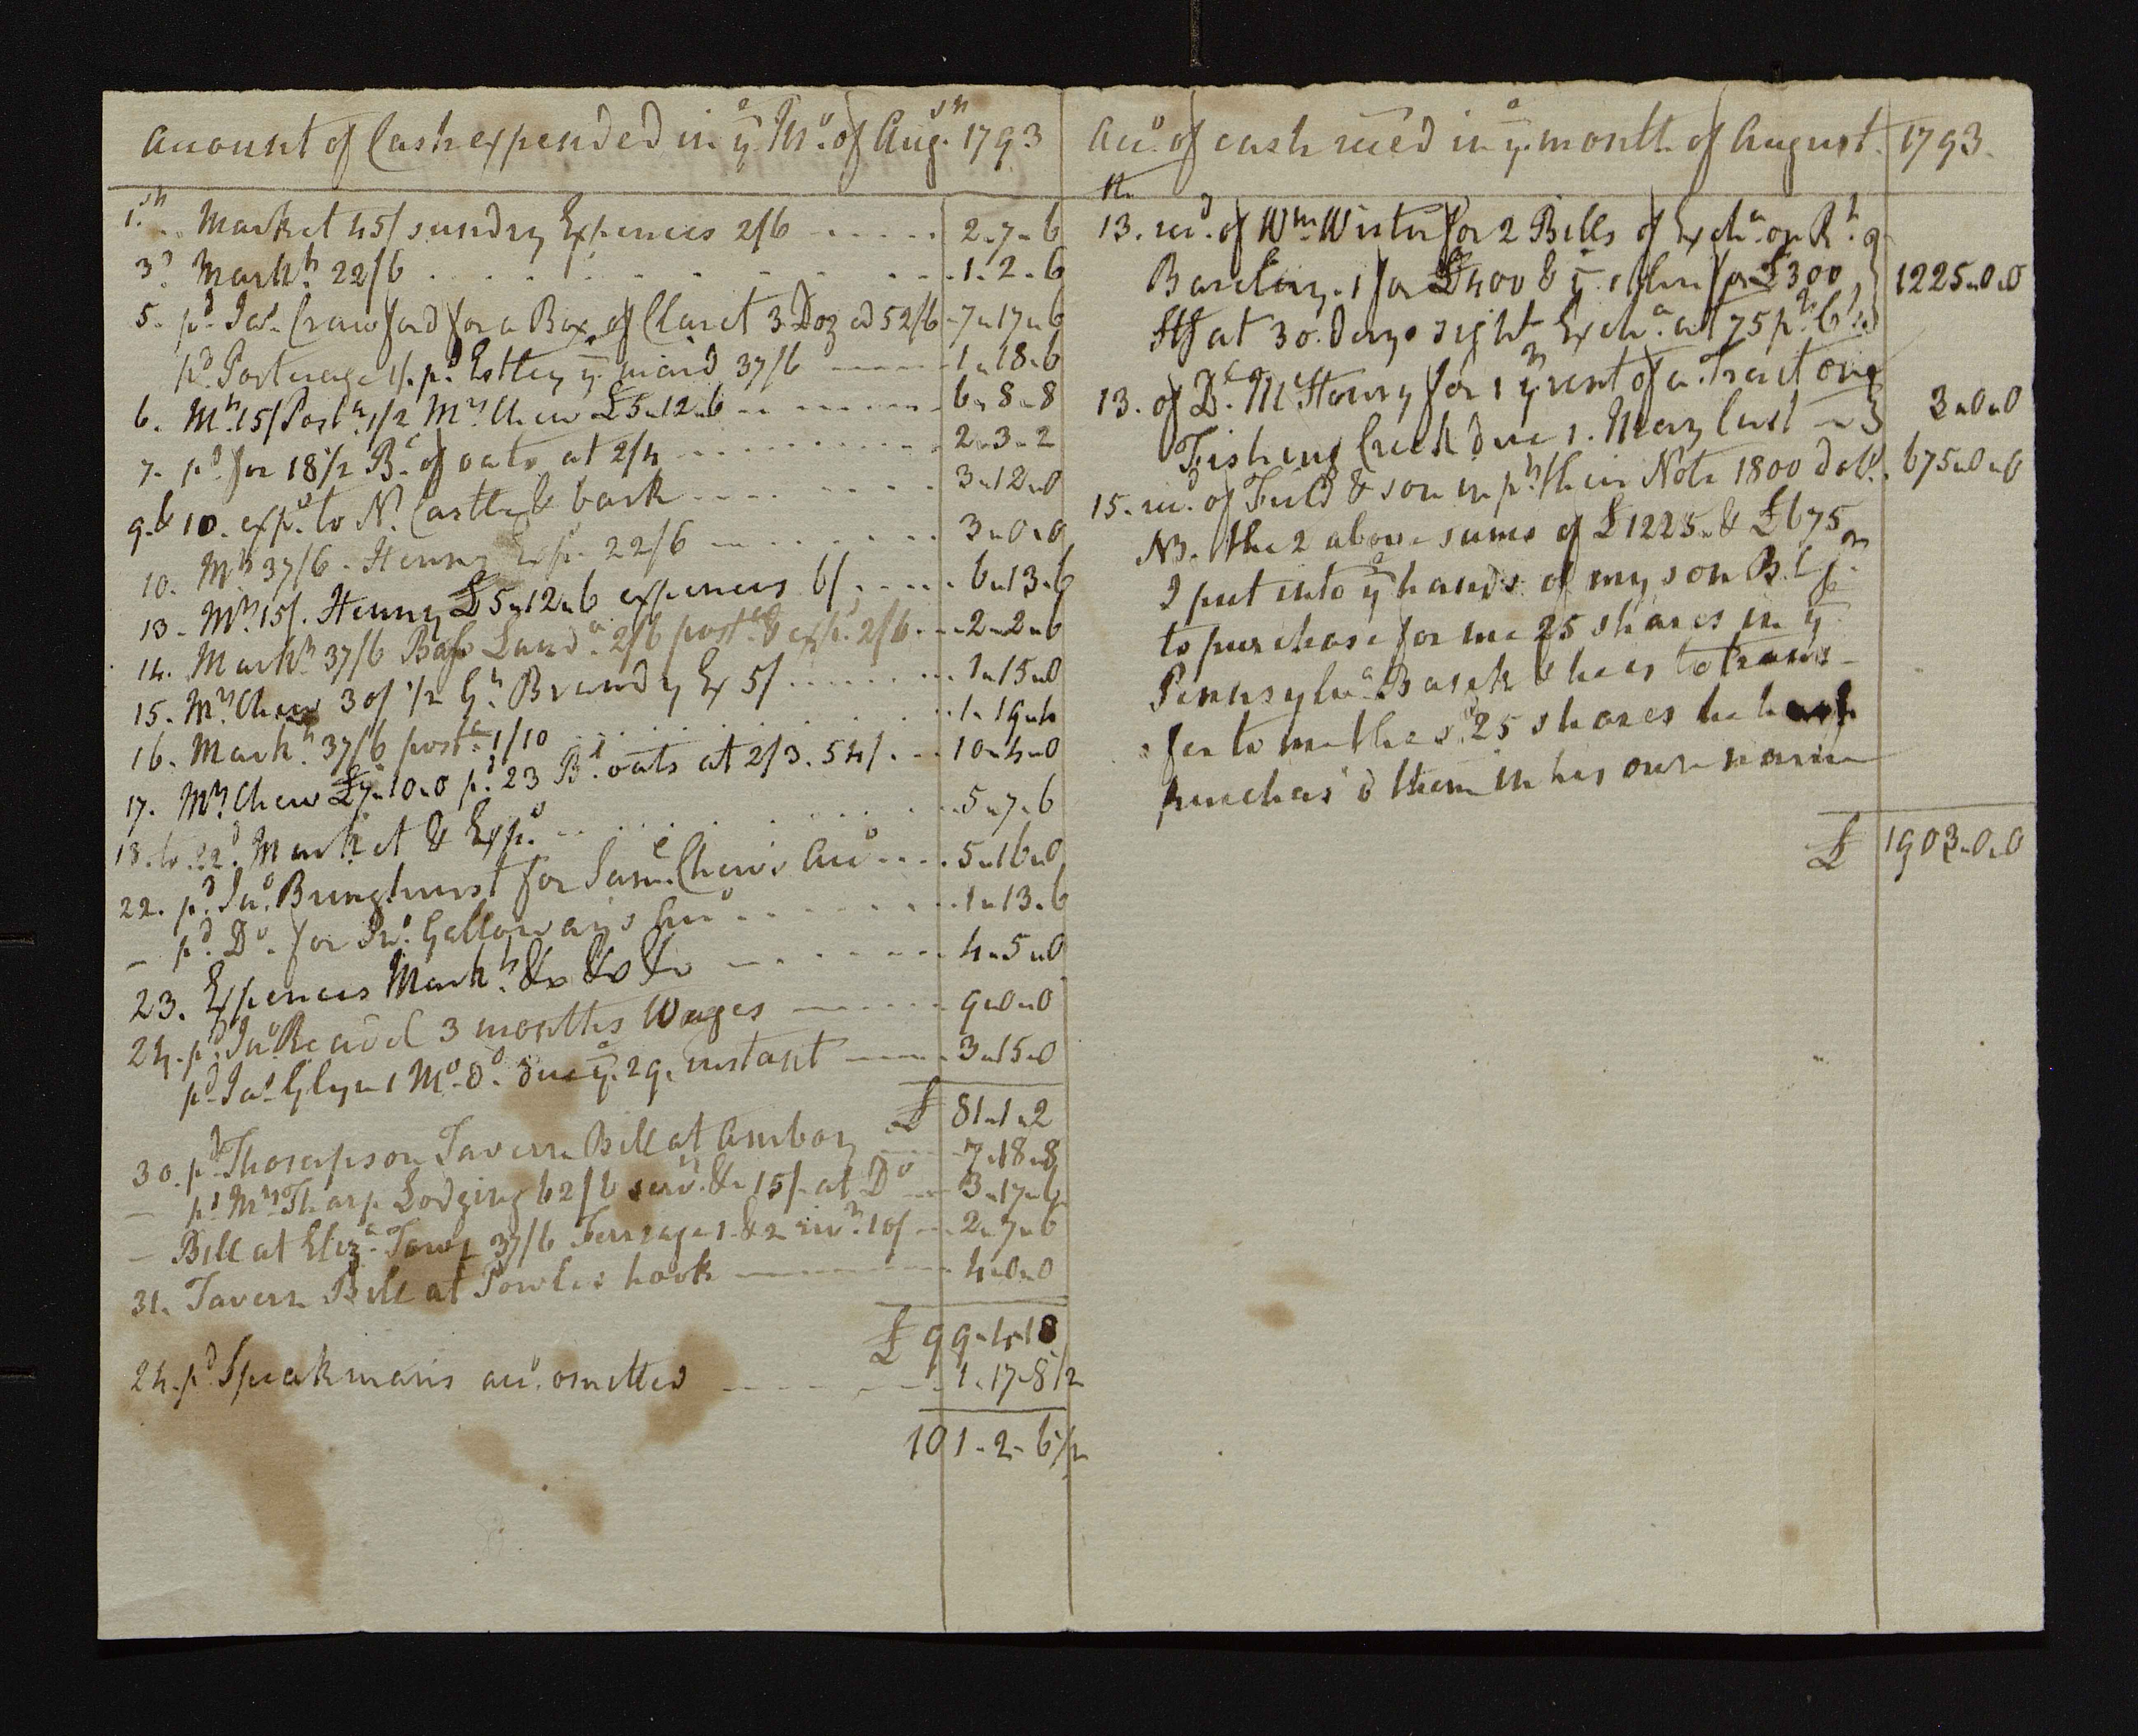 Account of Cash expended in ye Mo. of Augst. 1793
1st. Market 45/ sundry Expences 2/6 2-7-6
3d. Markt. 22/6 1-2-6
5. pd. Jas. Crawford for a Box of Claret 3 Doz ad 52/6 7-17-6
pd. Porterage 1/. pd. Esther ye maid 37/6 1-18-6
6. Mt. 15/ Posta. 1/2 Mrs. Chew £5-12-6 6-8-8
7. pd. for 18 1/2 Bs. of oats at 2/4 2-3-2
9. & 10. exps. to N. Castle & back 3-12-0
10. Mt. 37/6. Henny Exp. 22/6 3-0-0
13. Mt. 15/. Henny £5-12-6 expences 6/ 6-13-6
14. Markt. 37/6 2/6 poste. & exps. 2/6 2-2-6
15. Mrs. Chew 30/ 1/2 Gn. Brandy Ex 5/ 1-15-0
16. Markt. 37/6 posta. 1/10 1-19-4
17. Mrs. Chew £7-10-0 pd. 23 Bs. oats at 2/3. 54/. 10-4-0
18. to 22d. Market & Exps. 5-7-6
22. pd. Jno. Bringhurst for Saml. Chew's Acco. 5-16-0
— pd. Do. for Jno. Galloway's Acco. 1-13-6
23. Expences Markt. &c &c &c 4-5-0
24. pd. Jno. 3 months Wages 9-0-0
pd. Jas. Glyn 1 Mo. Do. due ye 29. instant 3-15-0
£ 81-1-2
30. pd. Thompson Tavern Bill at Amboy 7-18-8
— pd. Mrs. Tharp Lodging 62/6 servts. &c 15/ at Do. 3-17-6
— Bill at Eliza. Town 37/6 Ferrage 1 & 2 rivr. 10/ 2-7-6
31. Tavern Bill at Powles hook 4-0-0
£ 99-4-10
24. pd. Speakman's acco. omitted 1-17-8 1/2
101-2-6 1/2
Acco. of cash recd in ye month of August 1793.
13. recd. of Wm Wister for 2 Bills of Excha. on Rt.
Barclay. 1 for £400 & ye other for £300
Stg at 30. days sight Excha. at 75 pr. Ct. 1225-0-0
13. of D. McHenry for 1 yrs rent of a Tract on
Fishing Creek due 1. May last 3-0-0
15. recd. of Field & son in pt. their Note 1800 dolls. 675-0-0
NB. the 2 above sums of £1225 & £675
I put into ye hands of my son B. C jr.
to purchase for me 25 shares in ye
Pennsylva. Bank & he is to trans-
fer to me the sd. 25 shares he havg
purchas'd them in his own name
£ 1903-0-0